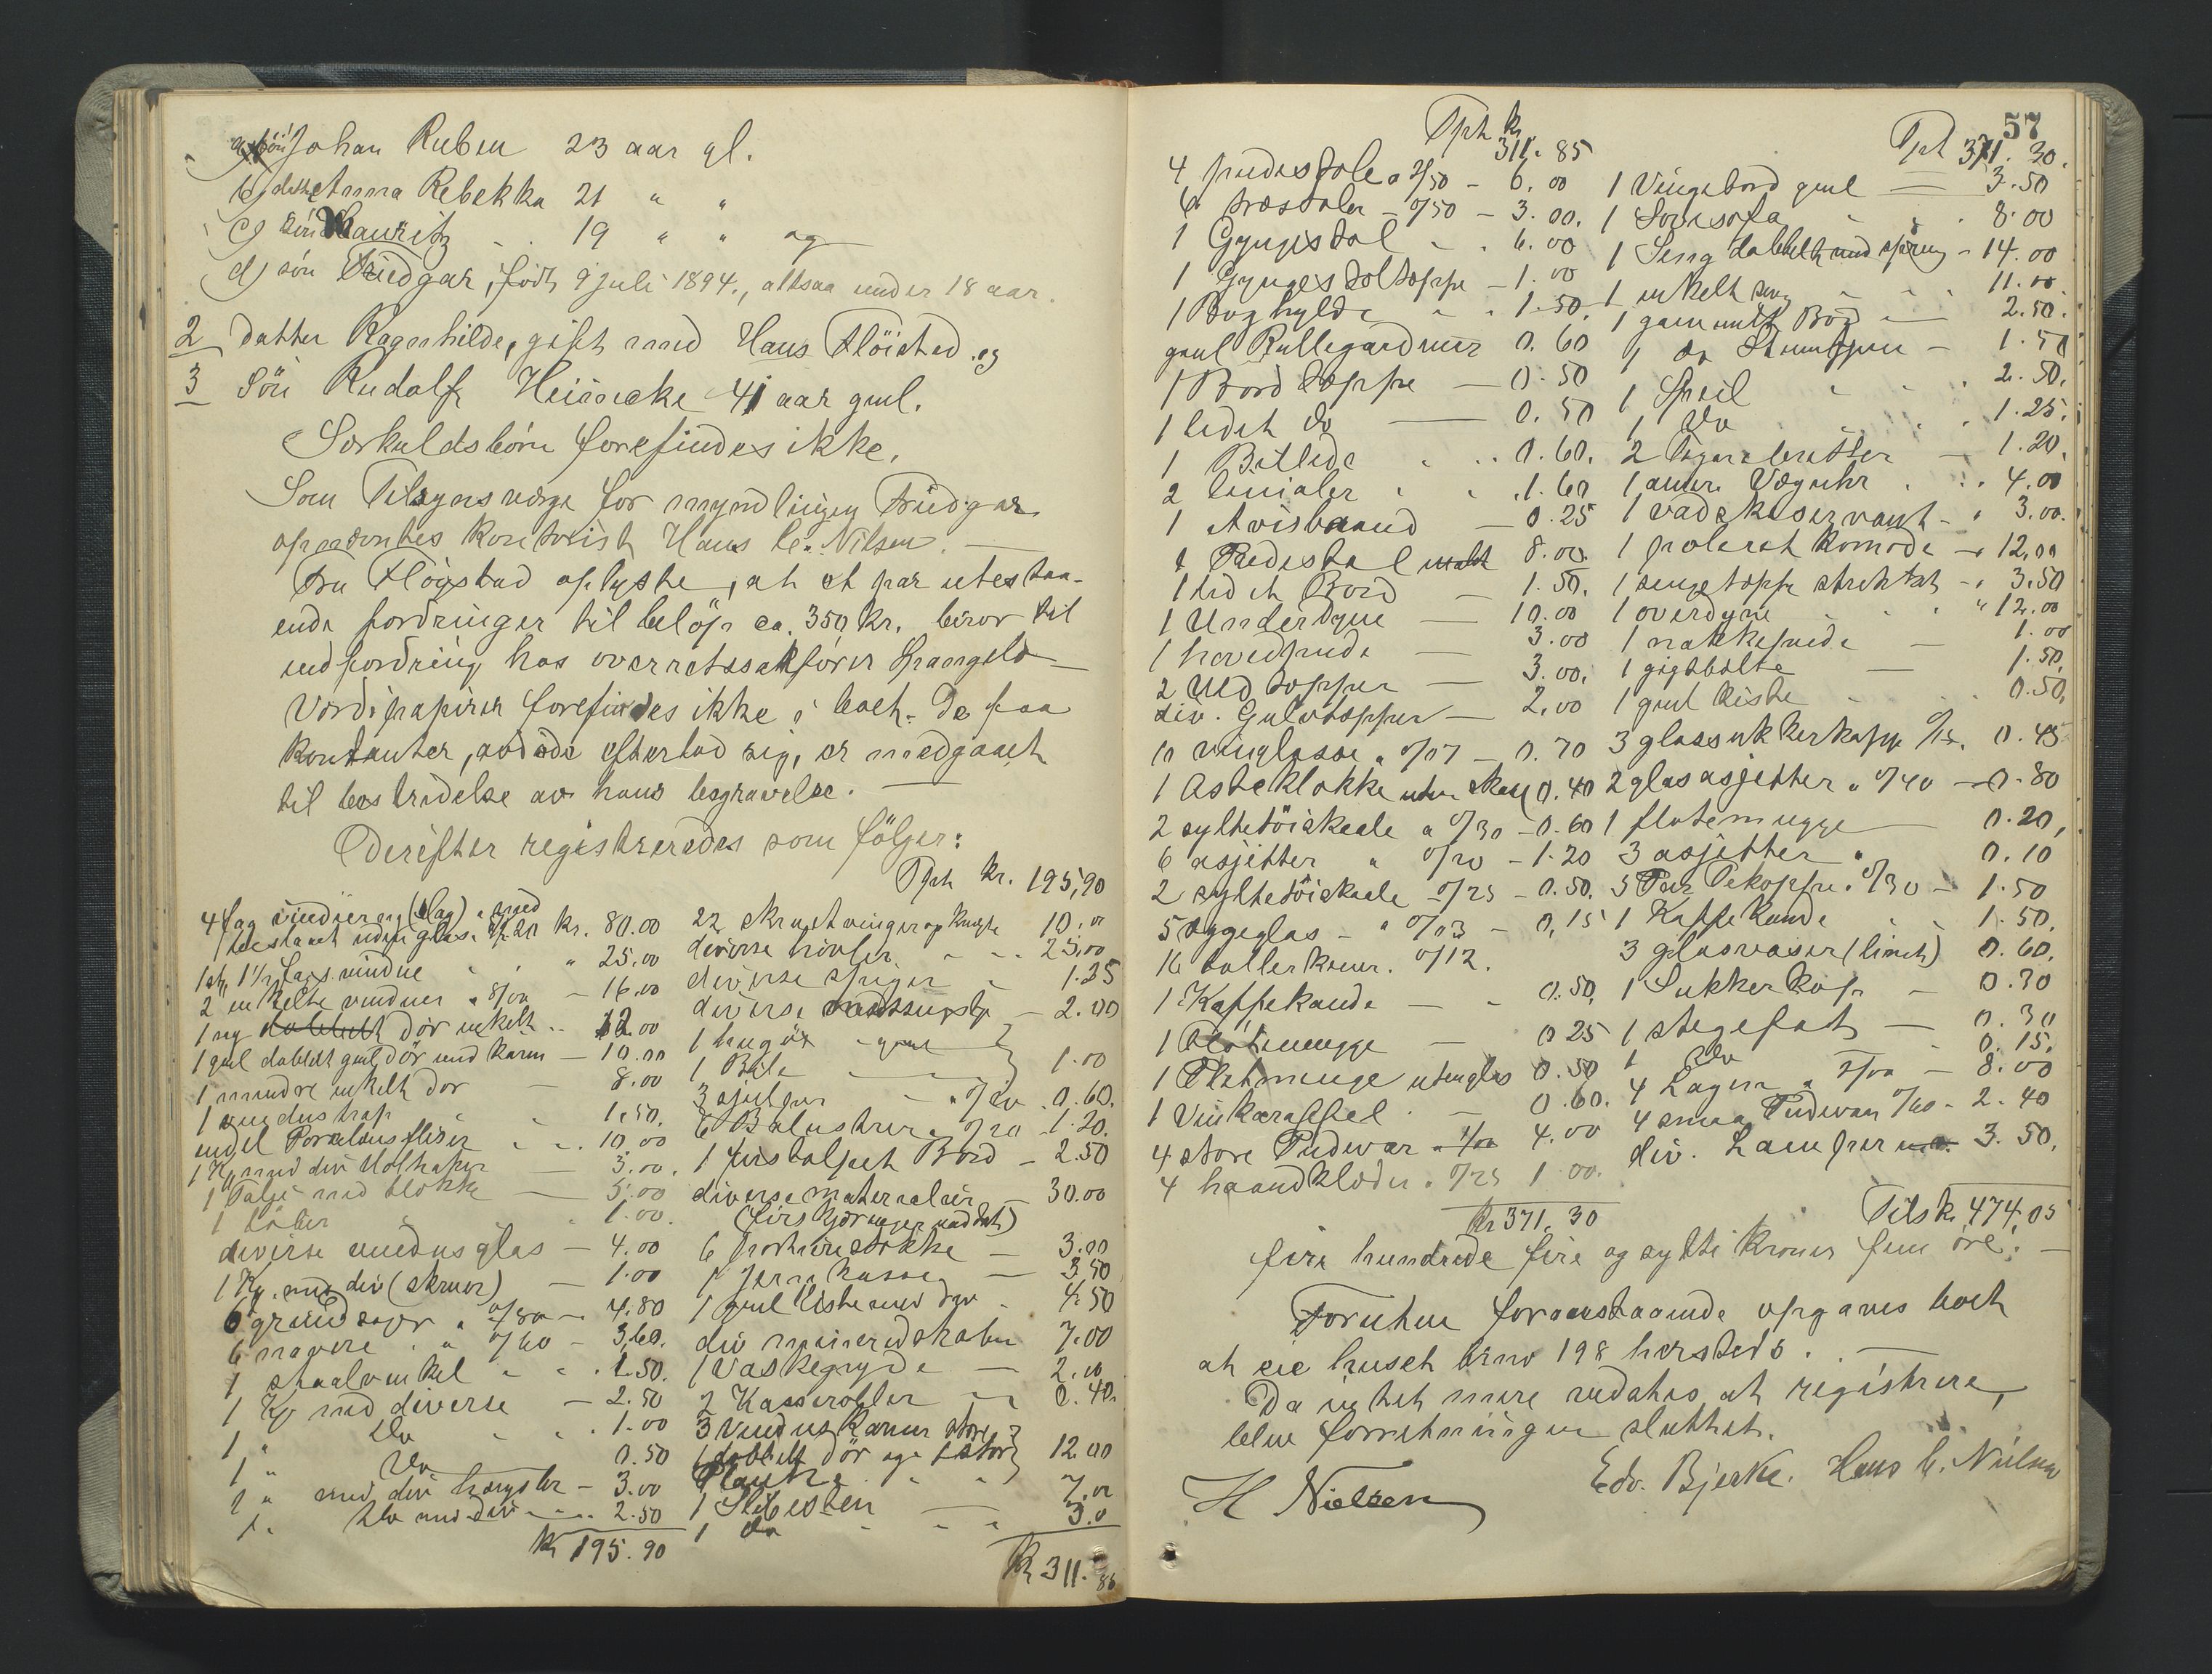 a) sön Johan Ruben 23 aar gl.
b) datter Anna Rebekka 21 " "
c) sön Lauritz - . 19 " " og
d) sön Fridgar, födt 9 juli 1894., altsaa under 18 aar.
2 datter Ragnhilde, gift med Hans Flöisted og
3 Sön Rudolf Heinecke 41 aar gml.
Særkuldsbörn forefindes ikke.
Som Tilsynsværge for myndlingen Fridgar
opnævntes kontorist Hans C. Nilsen. —
Fru Flögstad oplyste, at et par utestaa-
ende fordringer til belöp ca. 350 kr. beror til
indfordring hos overretssakförer
Værdipapirer forefindes ikke i boet. De faa
kontanter, avdöde efterlod sig, er medgaaet
til bestridelse av hans begravelse. —
Derefter registreredes som fölger:
Tpt kr. 195,90
4 fag vinduer og (slag) med
beslaaet uden glas. kr. 80.00
1 st. 1 1/2 fags vindue " 25.00
2 enkelte vinduer a 8/00 - 16.00
1 ny dobbelt dör enkelt .. 12.00
1 gml dobbelt gml dör med karm - 10.00
1 mindre enkelt dör - 8.00
1 1.50.
endel Portlands fliser .. 10.00
1 Kg med div - 3.00.
1 Talje med blokke - 5.00
1 1.00.
diverse vindusglas - 4.00
1 Kg. med div (skruer) - 1.00
6 grindsager a 0/80 - 4.80
6 navere . " 0/60 - 3,60.
1 staalvinkel " . 1.50.
1 Kg med diverse - 2.50
1 " Do " . 1.00
1 " Do 0.50
1 " med div hængsler - 3.00
1 " Do med div - .. 2.50
Kr 195.90
22 skruetvinger 10.00
diverse hövler. - .. 25,00
diverse spiger " 1.25
diverse - 2.00
1 hugöx - gml
1 Bile - 1.00
3 - a 0/20 . 0.60.
6 Balustrer a 0/20 - 1.20.
1 Bord - 2.50
diverse materialier - 30.00
6 - 3.00
1 Jern kasse - 3.50
1 gml kiste med div . 4.50
div mureredskaber 7.00
1 Vaskegryde - 2.00
2 Kasseroller - " 0.40.
3 Vinduskarm store
1 dobbelt dör 12.00
Planker " " 7.00
1 Slibesten - 3.0
1 do " "
Kr 311.85
57
Tpt kr 311.85
4 pudestole a 1/50 - 6.00
6 træstoler - 0/50 - 3.00.
1 Gyngestol . . 6.00
1 Gyngestoltæppe - 1.00
1 Boghylde " . 1.50.
gml Rullegardiner 0.60
1 Bordtæppe - 0.50
1 lidet do - 0.50
1 Billede . .. 0.60.
2 linialer . . . 1.60
1 Avisbaand - 0.25
1 Piedestal malt 8.00.
1 lidet Bord - 1.50.
1 Underdyne - 10.00
1 hovedpude - 3.00
2 Uldtæpper - 3.00.
div. Gulvtæpper - 2.00
10 vinglasse a 0/07 - 0.70
1 Osteklokke uten skaal 0.40
2 syltetöiskaale a 0/30 - 0.60
6 asjetter " 0/20 - 1.20
2 syltetöiskaale - 0/25 - 0.50.
5 æggeglas - " 0/03 - 0,15
16 tallerkener. 0/12.
1 Kaffekande - - 0.50.
1 Flötemugge - 0.25
1 Ölmugge utenglas 0.50
1 Vinkaraffel . - 0.60.
4 store Pudevar a 1/00 4.00
4 haandklæder . 0/25 1.00.
Kr 371.30
Tpt 371.30.
1 Vingebord gml - 3.50
1 Sovesofa " " . 8.00
1 Seng dobbelt med spring - 14.00
1 enkelt seng " " " 11.00.
1 gammelt Bord - 2.50.
1 do - 1.50
1 Speil " " . 2.50.
1 do " . . 1.25.
2 - 1.20.
1 amer. Væguhr . .. 4.00
1 vaskeservant - " 3.00.
1 poleret komode - 12.00
1 sengetæppe strikket - " 3.50
1 overdyne " . " 12.00
1 nakkepude - 1.00
1 gigtbelte - 1.50.
1 gml kiste - . . 0.50.
3 glassukkerkopp 0/15. 0.45
2 glasasjetter " 0/40 - 0.80
1 flötemugge - 0.20,
3 asjetter " 0.10
5 Par Tekopper a 0/30 - 1.50
1 Kaffekande . . 1.50.
3 glasvaser (limet) 0.60.
1 Sukkerkop - 0.30
1 stegefat - 0.30
1 do . 0.15.
4 Lagen a 2/00 - 8.00
4 smaa Pudevar 0/60 - 2.40
div. Lamper 3.50.
Tils kr 474,05
fire hundrede fire og sytti kroner fem öre. -
Foruten foranstaaende opgaves boet
at eie huset brno 198 hersteds. . -
Da intet mere vedates at registrere,
blev forretningen sluttet.
H Nielsen
Edv. Bjerke. Hans C. Nielsen